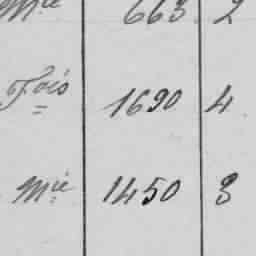 Mie 663 2
Fois 1690 4
Mie 1450 3